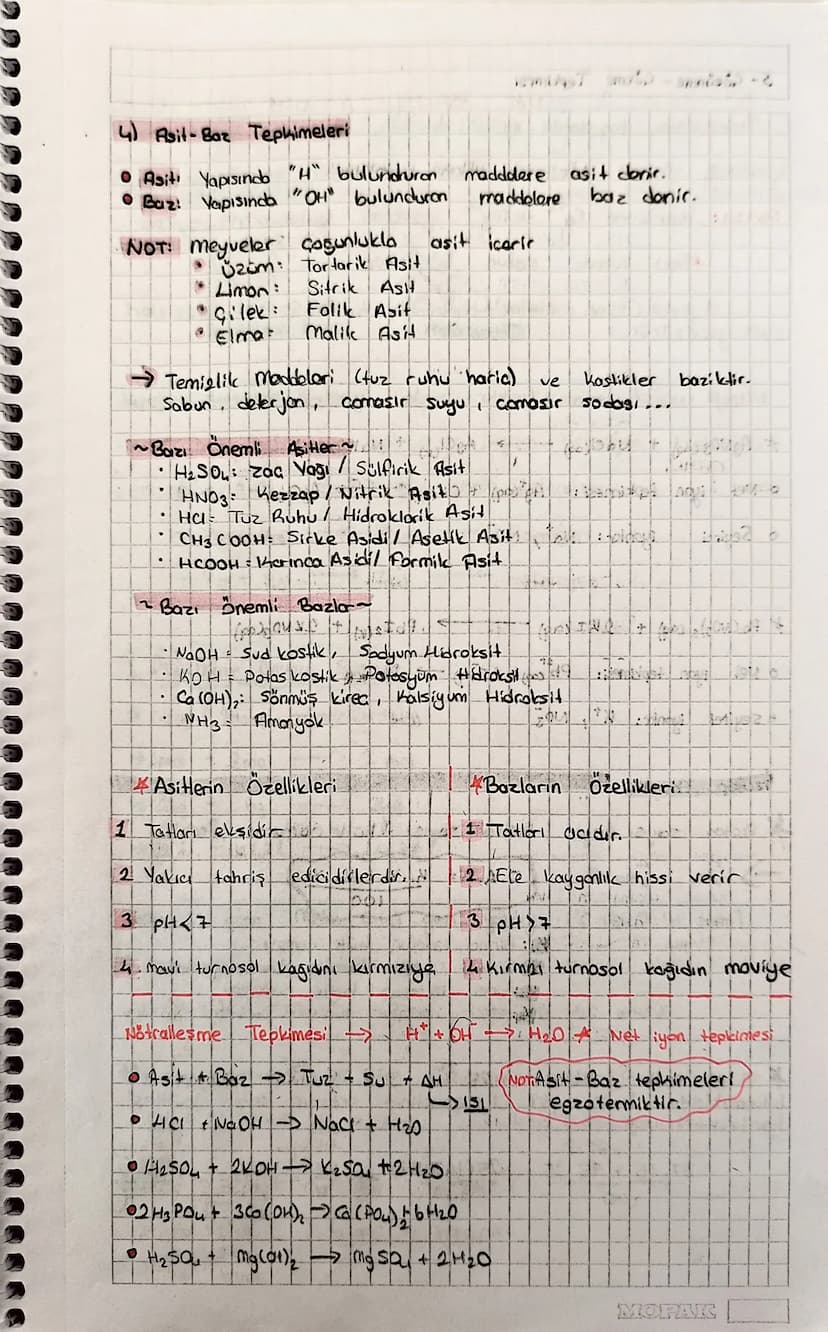 4) Asit-Baz Tepkimeleri
• Asit: Yapısında "H" bulunduran maddelere asit denir.
• Baz: Yapısında "OH" bulunduran maddelere baz denir.
NOT: meyveler çoğunlukla asit içerir
• Üzüm: Tartarik Asit
• Limon: Sitrik Asit
• Çilek: Folik Asit
• Elma: Malik Asit
→ Temizlik Maddeleri (tuz ruhu haric) ve kostikler baziktir.
Sabun, deterjan, camasır suyu, camasır sodası...
~Bazı Önemli Asitler~
· H₂SO₄: Zaç Yağı / Sülfirik Asit
· HNO₃: Kezzap / Nitrik Asit
· HCl: Tuz Ruhu / Hidroklorik Asit
· CH₃COOH: Sirke Asidi / Asetik Asit
· HCOOH: Karınca Asidi / Formik Asit
~ Bazı Önemli Bazlar~
· NaOH = Sud kostik, Sodyum Hidroksit
· KOH = Potas kostik, Potasyum Hidroksit
· Ca(OH)₂: Sönmüş kirec, Kalsiyum Hidroksit
· NH₃ = Amonyak
*Asitlerin Özellikleri
1 Tatları ekşidir
2 Yakıcı tahriş edicidirlerdir.
3 pH<7
4. mavi turnosol kağıdını kırmızıya
*Bazların Özellikleri
1 Tatları acıdır.
2. Ele kayganlık hissi verir
3 pH>7
4 Kırmızı turnosol kağıdın maviye
Nötralleşme Tepkimesi → H⁺ + OH⁻ → H₂O * Net iyon tepkimesi
• Asit + Baz → Tuz + Su + ΔH
↳ ISI
NOT: Asit-Baz tepkimeleri
egzotermiktir.
• HCl + NaOH → NaCl + H₂O
• H₂SO₄ + 2KOH → K₂SO₄ + 2H₂O
• 2H₃PO₄ + 3Ca(OH)₂ → Ca(PO₄)₂ + 6H₂O
• H₂SO₄ + Mg(OH)₂ → MgSO₄ + 2H₂O
MOPAK